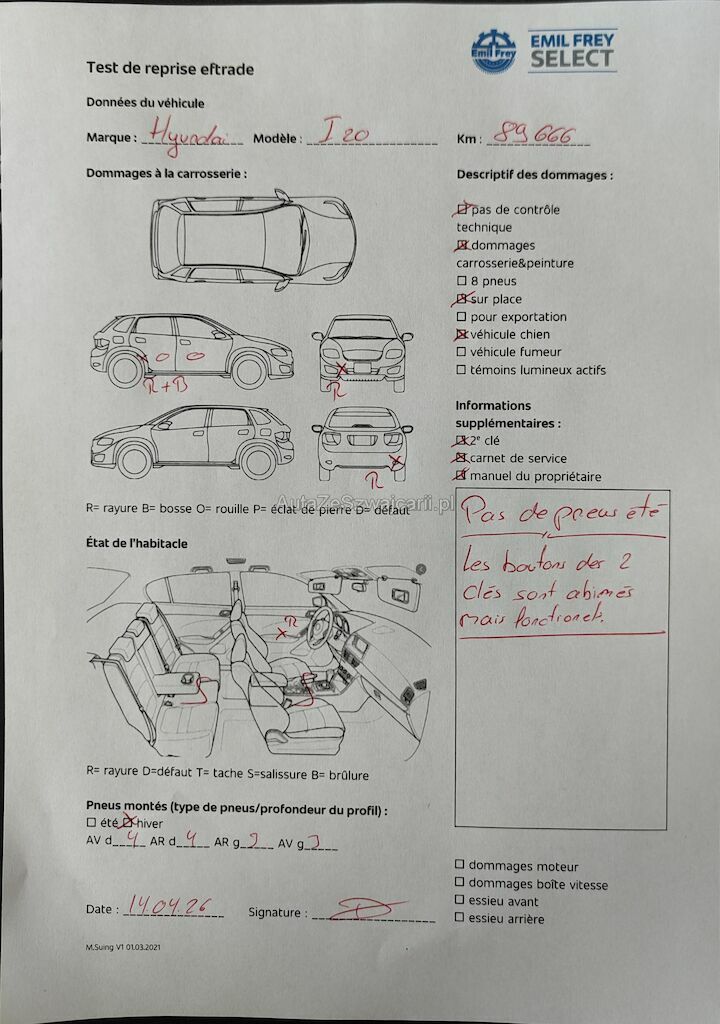 EMIL FREY
SELECT
Emil Frey
Test de reprise eftrade
Données du véhicule
Marque : Hyundai Modèle : I 20 Km : 89 666
Dommages à la carrosserie :
R + B
R
R
R= rayure B= bosse O= rouille P= éclat de pierre D= défaut
État de l'habitacle
R
S
S
R= rayure D=défaut T= tache S=salissure B= brûlure
Pneus montés (type de pneus/profondeur du profil) :
été hiver
AV d 4 AR d 4 AR g 3 AV g 3
Date : 14.04.26 Signature :
M.Suing V1 01.03.2021
Descriptif des dommages :
pas de contrôle
technique
dommages
carrosserie&peinture
8 pneus
sur place
pour exportation
véhicule chien
véhicule fumeur
témoins lumineux actifs
Informations
supplémentaires :
2e clé
carnet de service
manuel du propriétaire
Pas de pneus été
Les boutons des 2
clés sont abimés
mais fonctionels.
dommages moteur
dommages boîte vitesse
essieu avant
essieu arrière
AutaZeSzwajcarii.pl